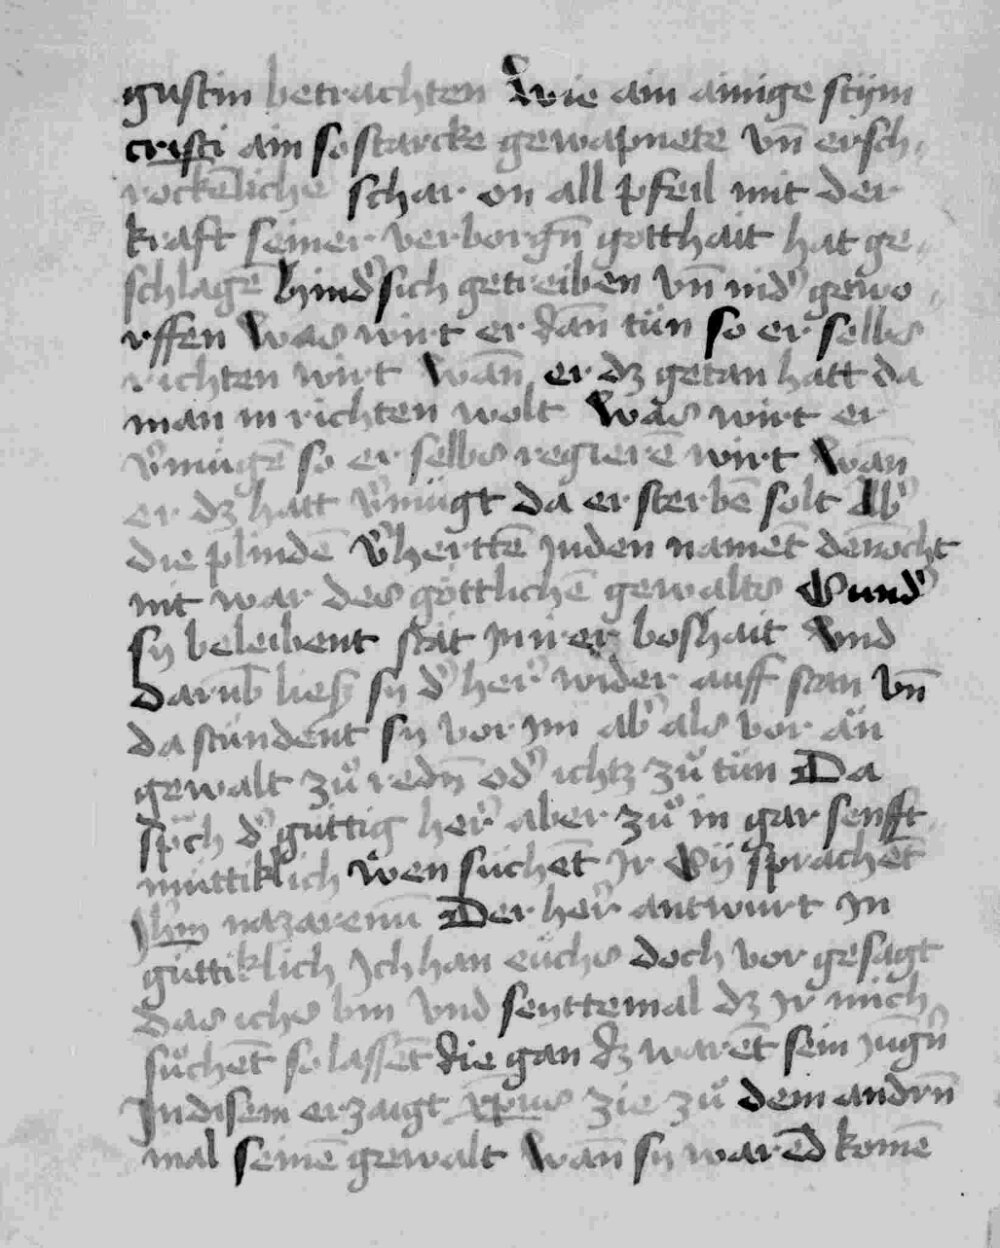 gustin betrachten Wie ain ainige stym
cristi ain so starcke gewapnete vn̄ ersch¬
rockēliche schar on all pfeil mit der
kraft seiner verborgn̄ gotthait hat ge¬
schlagē hindʾ sich getreiben vn̄ nidʾ gewo¬
rffen Was wirt er dan̄ tün so er selbs
richten wirt Wan̄ er dz getan hatt da
man in richten wolt Was wirt er
vʾmügē so er selbs regierē wirt Wan̄
er dz hatt vʾmügt da er sterbē solt Abʾ
die plindē vʾherttē Juden namēt den̄ocht
nit war des göttlichē gewalts Vundʾ
sy beleibent stät jn irer boshait Vnd
darūb liesz sy dʾ herʾ wider auff stan vn̄
da stündent sy vor jm abʾ als vor än
gewalt zů redn̄ odʾ ichtz zů tün Da
sp̄ch dʾ güttig herʾ aber zů in gar senfft
müttiklich wen süchēt Jr Sy sprachēt
Jhm̄ nazarenū Der herʾ antwurt Jn
güttiklich Jch han euchs doch vor gesagt
das ichs bin Vnd seyttemal dz Jr mich
süchēt so lassēt die gan dz warēt sein jūgʾn
Jn disem erzaigt xp̄us zie zů dem andrn̄
mal seinē gewalt Wan̄ sy wared komē